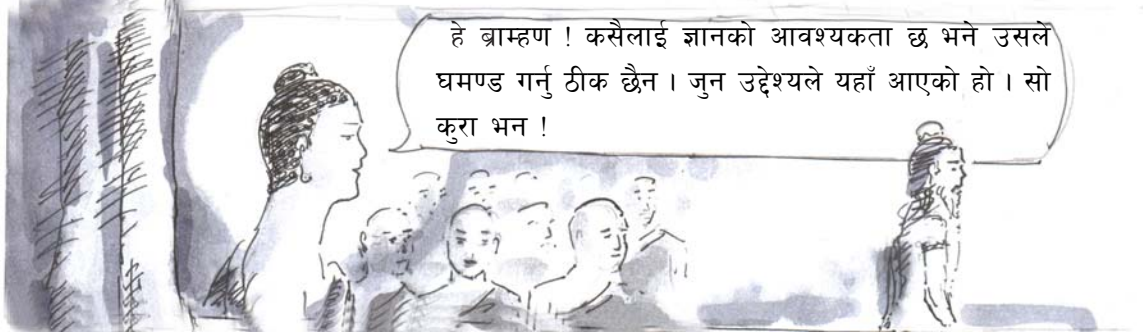 हे ब्राम्हण ! कसैलाई ज्ञानको आवश्यकता छ भने उसले
घमण्ड गर्नु ठीक छैन । जुन उद्देश्यले यहाँ आएको हो । सो
कुरा भन !